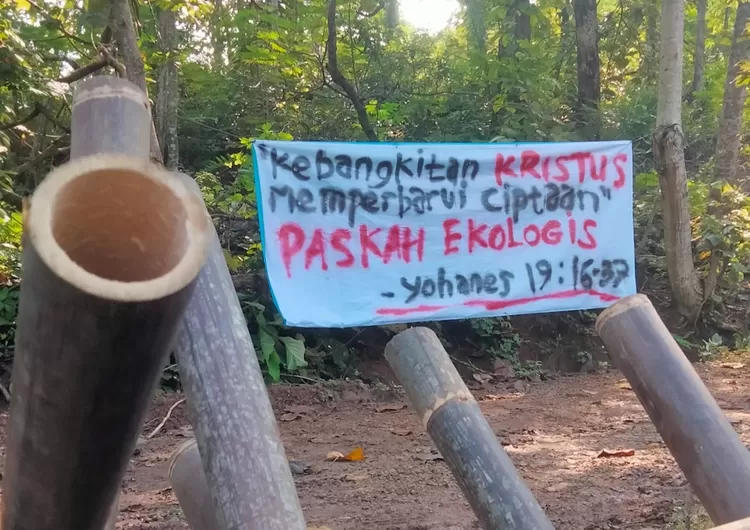 "Kebangkitan KRISTUS
Memperbarui Ciptaan"
PASKAH EKOLOGIS
- Yohanes 19:16-37